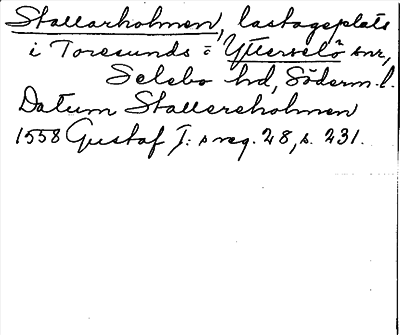 Stallarholmen, lastageplats
i Toresunds o Ytterselö snr,
Selebo hd, Söderm. l.
Datum Stallersholmen
1558 Gustaf I: s reg. 28, s. 231.